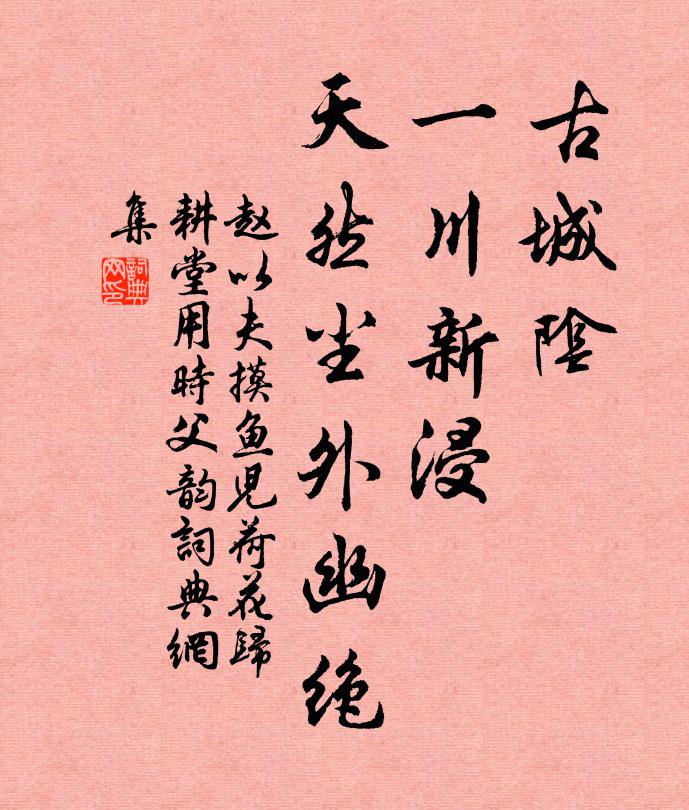 古城陰
一川新浸
天然尘外幽绝
赵以夫摸鱼児荷花歸
耕堂用時父韵詞典網
集
詞典
网印